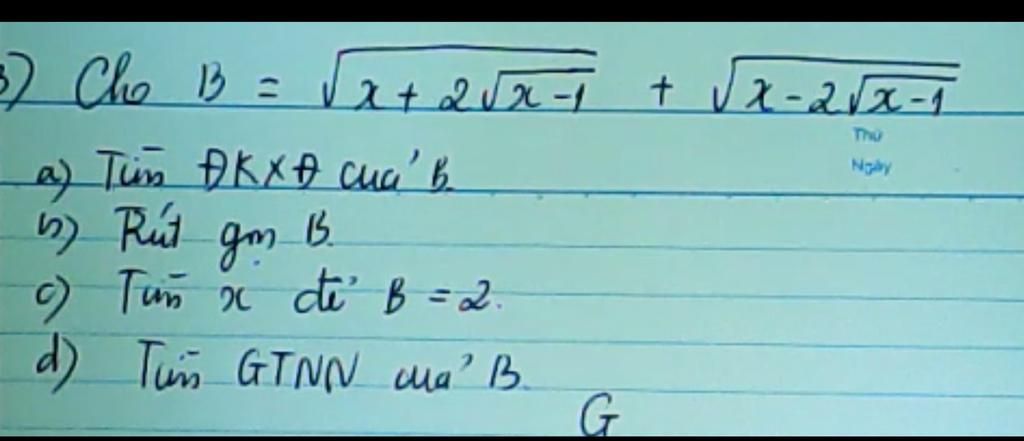 3) Cho B = √(x + 2√(x-1)) + √(x - 2√(x-1))
Thứ
Ngày
a) Tìm ĐKXĐ của B.
b) Rút gọn B.
c) Tìm x để B = 2.
d) Tìm GTNN của B.
G